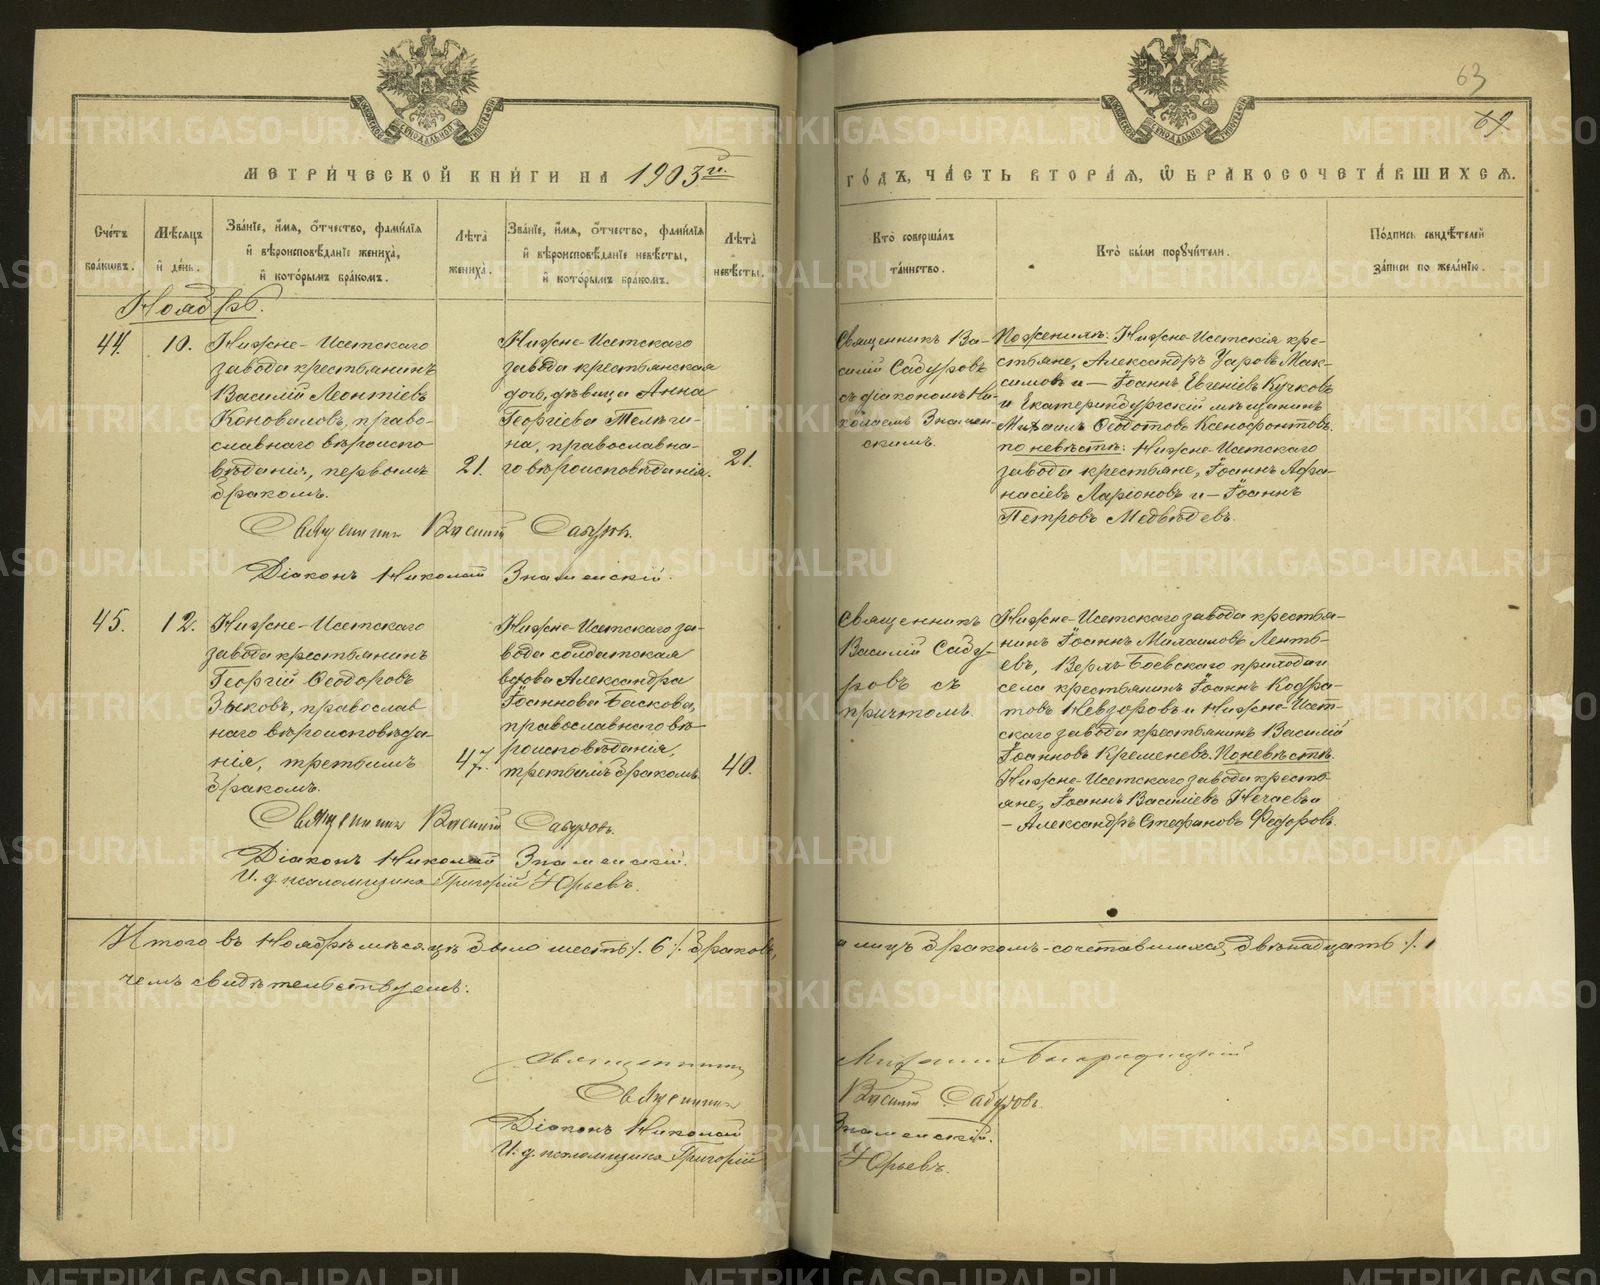 63
69
МЕТРИ́ЧЕСКОЙ КНИ́ГИ НА 1903 г.
ГО́ДЪ, ЧА́СТЬ ВТОРА́Я, Ѡ БРАКОСОЧЕТА́ВШИХСЯ.
Сче́тъ бра́кѡвъ.
Мѣ́сяцъ и҆ де́нь.
Зва́нїе, и҆́мя, ѻ҆́тчество, фами́лїя и҆ вѣроисповѣ́данїе жениха̀, и҆ кото́рымъ бра́комъ.
Лѣ́та жениха̀.
Зва́нїе, и҆́мя, ѻ҆́тчество, фами́лїя и҆ вѣроисповѣ́данїе невѣ́сты, и҆ кото́рымъ бра́комъ.
Лѣ́та невѣ́сты.
Кто̀ соверша́лъ та́инство.
Кто̀ бы́ли поручи́тели.
По́дпись свидѣ́телей за́писи по жела́нїю.
Ноябрь.
44.
10.
Нижне-Исетскаго
завода крестьянинъ
Василій Леонтіевъ
Коноваловъ, право-
славнаго вѣроиспо-
вѣданія, первымъ
бракомъ.
21.
Нижне-Исетскаго
завода крестьянская
дочь, дѣвица Анна
Георгіева Телѣги-
на, православна-
го вѣроисповѣданія.
21.
Священникъ Ва-
силій Сабуровъ
съ діакономъ Ни-
колаемъ Знамен-
скимъ.
По женихѣ: Нижне-Исетскія кре-
стьяне, Александръ Уаровъ Мак-
симовъ и — Іоаннъ Евгеніевъ Кучковъ
и Екатеринбургскій мѣщанинъ
Михаилъ Ѳеодотовъ Ксенофонтовъ.
по невѣстѣ: Нижне-Исетскаго
завода крестьяне, Іоаннъ Афа-
насіевъ Ларіоновъ и — Іоаннъ
Петровъ Медвѣдевъ.
Священникъ Василій Сабуровъ.
Діаконъ Николай Знаменскій.
45.
12.
Нижне-Исетскаго
завода крестьянинъ
Георгій Ѳеодоровъ
Зыковъ, православ
наго вѣроисповѣда-
нія, третьимъ
бракомъ.
47.
Нижне-Исетскаго за-
вода солдатская
вдова Александра
Іоаннова Баскова,
православнаго вѣ-
роисповѣданія,
третьимъ бракомъ.
40.
Священникъ
Василій Сабу-
ровъ съ
причтомъ.
Нижне-Исетскаго завода крестья-
нинъ Іоаннъ Михаиловъ Ленть-
евъ, Верхъ-Боевскаго прихода и
села крестьянинъ Іоаннъ Кодра-
товъ Невзоровъ и Нижне-Исет-
скаго завода крестьянинъ Василій
Іоанновъ Кремeневъ. По невѣстѣ:
Нижне-Исетскаго завода кресть-
яне, Іоаннъ Василіевъ Нечаевъ и
— Александръ Стефановъ Федоровъ.
Священникъ Василій Сабуровъ.
Діаконъ Николай Знаменскій.
И. д. псаломщика Григорій Юрьевъ.
Итого въ Ноябрѣ мѣсяцѣ было шесть /. 6 /. браковъ,
а лицъ бракомъ-сочетавшихся, двѣнадцать /. 1
чемъ свидѣтельствуемъ:
Священникъ Михаилъ Богородицкій
Священникъ Василій Сабуровъ.
Діаконъ Николай Знаменскій.
И. д. псаломщика Григорій Юрьевъ.
METRIKI.GASO-URAL.RU